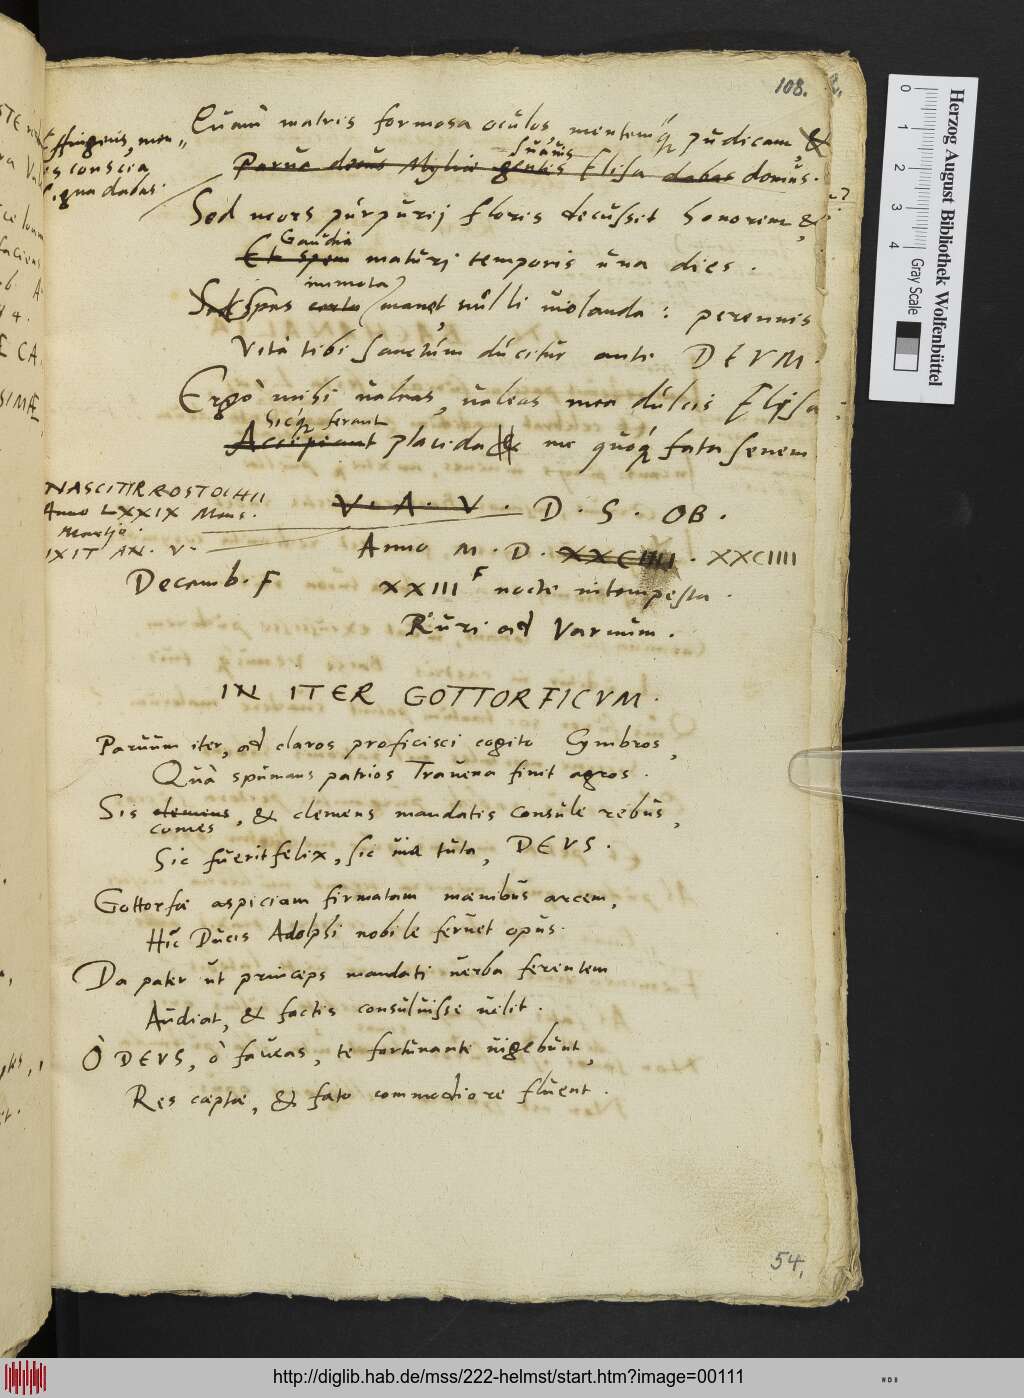 108.
Quàm matris formosa oculos, mentemq́ pudicam &
suauis
Parua decus Myliae gentis Elisa dabas domus.
ffingens, men
is conscia
signa dabas.
Sed mors púrpurej floris decussit honorem &
Gaudia
Et spem maturj temporis una dies.
immota
Sed Spes certa manet, nulli violanda: perennis
Vita tibi sanctúm dúcitur ante DEVM.
Ergò mihi ualeas, ualeas mea dúlcis Elysa
Sicq́ ferant
Accipiant placida & me quoq́ fata senem
NASCITVR ROSTOCHII
Anno LXXIX Mens.
Martjo.
IXIT AN. V.
Decemb. F
V. A. V. D. S. OB.
Anno M. D. XXCIIII. XXCIIII
XXIII F nocte intempesta.
Ruri ad Varnum.
IN ITER GOTTORFICVM.
Paruum iter, ad claros proficisci cogito Cymbros,
Quà spumans patrios Trauena finit agros.
Sis clemens, & clemens mandatis consule rebus,
comes
Sic fuerit felix, sic uia tuta, DEVS.
Gottorfae aspiciam firmatam moenibus arcem,
Hîc Ducis Adolphi nobile feruet opus.
Da pater ut princeps mandati uerba ferentem
Audiat, & factis consuluisse uelit.
Ò DEVS, ò faueas, te fortunante uigebunt,
Res coeptae, & fato commodiore fluent.
54.
Herzog August Bibliothek Wolfenbüttel
Gray Scale
0 1 2 3 4
http://diglib.hab.de/mss/222-helmst/start.htm?image=00111